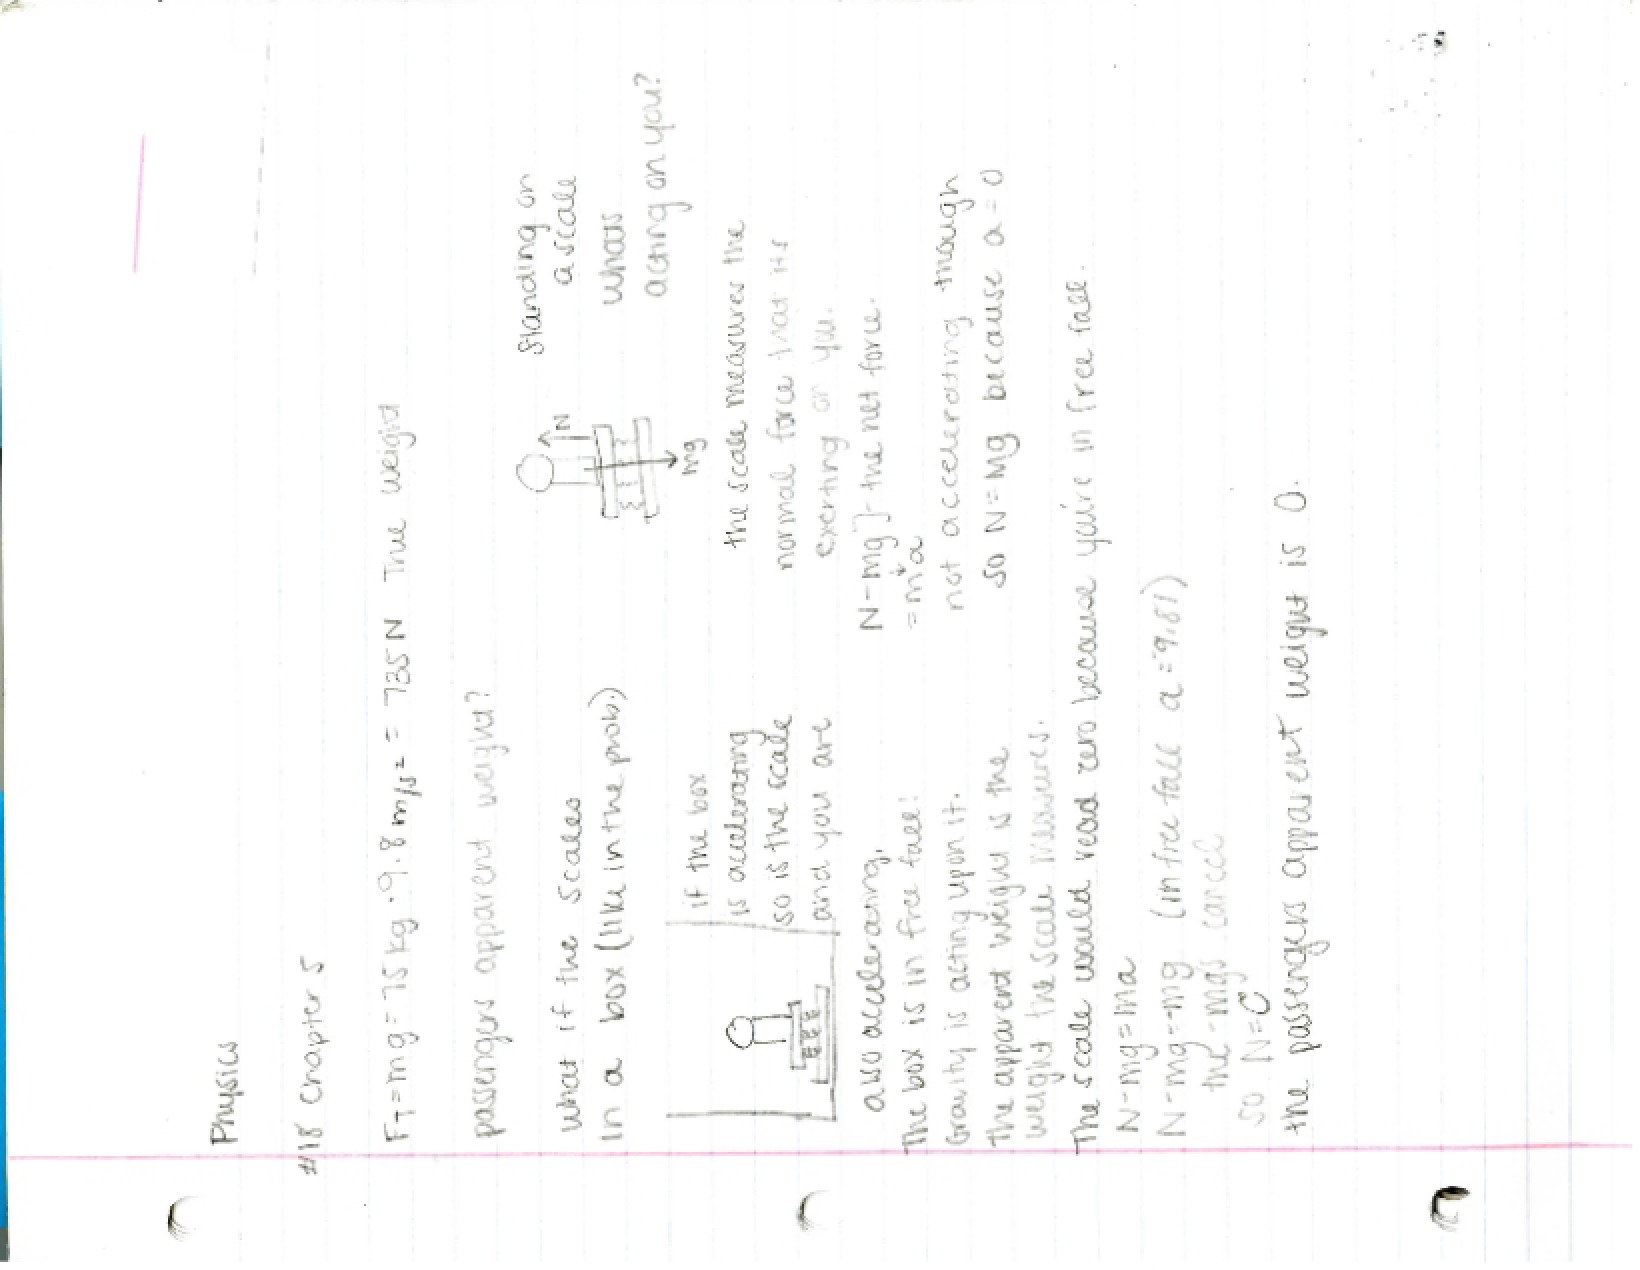 Physics
#18 Chapter 5
F_T = mg = 75 kg · 9.8 m/s² = 735 N True weight
passengers apparent weight?
what if the scales
in a box (like in the prob.)
if the box
is accelerating
so is the scale
and you are
also accelerating.
The box is in free fall!
Gravity is acting upon it.
The apparent weight is the
weight the scale measures.
N
mg
Standing on
a scale
whats
acting on you?
the scale measures the
normal force that its
exerting on you.
N - mg } the net force.
= ma
not accelerating though
so N = mg because a = 0
The scale would read zero because you're in free fall.
N - mg = ma
N - mg = -mg (in free fall a = -9.81)
the -mgs cancel
so N = 0
the passengers apparent weight is 0.